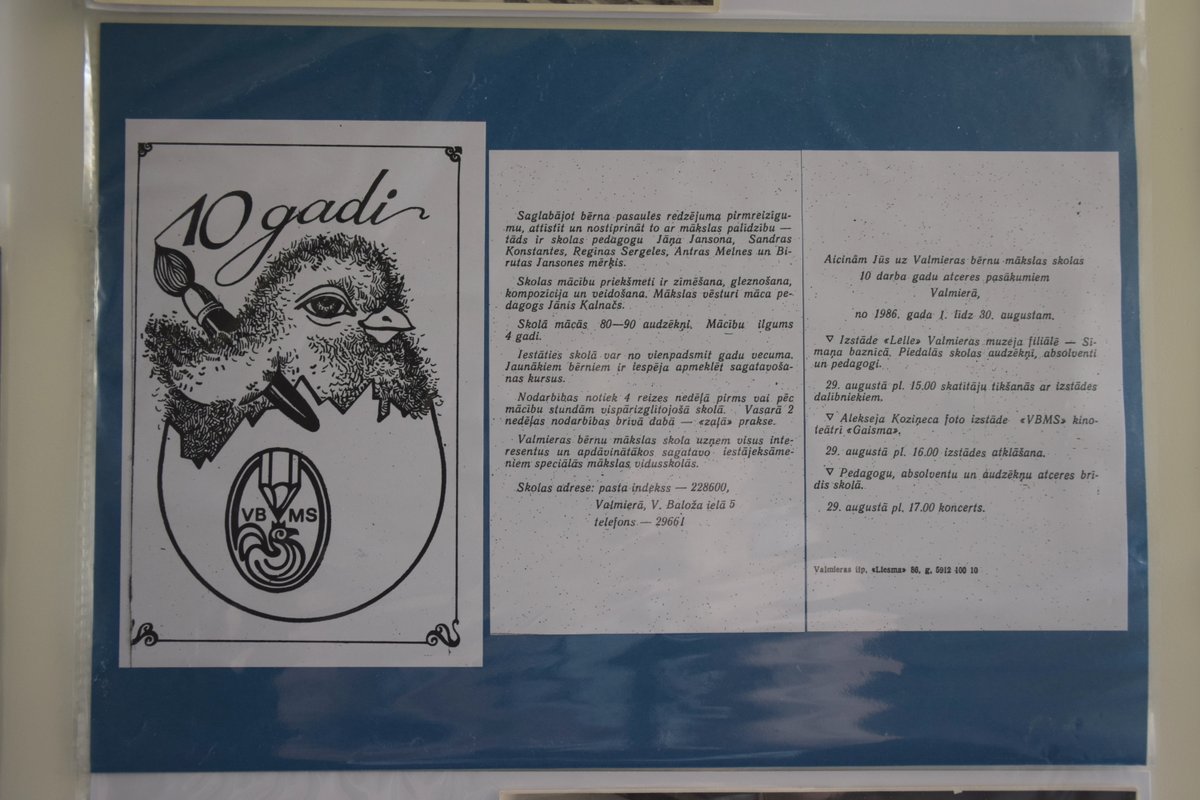 10 gadi
VB MS
Saglabājot bērna pasaules redzējuma pirmreizīgu-
mu, attīstīt un nostiprināt to ar mākslas palīdzību —
tāds ir skolas pedagogu Jāņa Jansona, Sandras
Konstantes, Regīnas Sergeles, Antras Melnes un Bi-
rutas Jansones mērķis.
Skolas mācību priekšmeti ir zīmēšana, gleznošana,
kompozīcija un veidošana. Mākslas vēsturi māca pe-
dagogs Jānis Kalnačs.
Skolā mācās 80—90 audzēkņi. Mācību ilgums
4 gadi.
Iestāties skolā var no vienpadsmit gadu vecuma.
Jaunākiem bērniem ir iespēja apmeklēt sagatavoša-
nas kursus.
Nodarbības notiek 4 reizes nedēļā pirms vai pēc
mācību stundām vispārizglītojošā skolā. Vasarā 2
nedēļas nodarbības brīvā dabā — «zaļā» prakse.
Valmieras bērnu mākslas skola uzņem visus inte-
resentus un apdāvinātākos sagatavo iestājeksāme-
niem speciālās mākslas vidusskolās.
Skolas adrese: pasta indekss — 228600,
Valmierā, V. Baloža ielā 5
telefons — 29661
Aicinām Jūs uz Valmieras bērnu mākslas skolas
10 darba gadu atceres pasākumiem
Valmierā,
no 1986. gada 1. līdz 30. augustam.
▽ Izstāde «Lelle» Valmieras muzeja filiālē — Sī-
maņa baznīcā. Piedalās skolas audzēkņi, absolventi
un pedagogi.
29. augustā pl. 15.00 skatītāju tikšanās ar izstādes
dalībniekiem.
▽ Alekseja Koziņeca foto izstāde «VBMS» kino-
teātrī «Gaisma».
29. augustā pl. 16.00 izstādes atklāšana.
▽ Pedagogu, absolventu un audzēkņu atceres brī-
dis skolā.
29. augustā pl. 17.00 koncerts.
Valmieras tip. «Liesma» 86. g. 5912 100 10